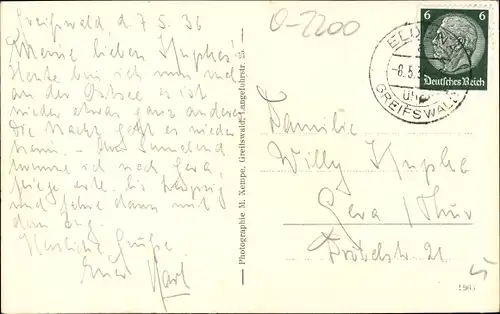 Greifswald d. 7 5. 36
Meine lieben
Heute bin ich nun mal
an der Ostsee es ist
wieder etwas ganz anderes
Die Nacht geht es wieder
heim. -
nach Gera,
fliege erst bis Leipzig
und fahre dann mit
dem Zug.
Herzliche Grüße
Euer Karl
Photographie M. Kempe, Greifswald, Langefuhrstr. 25
0-2200
6 6
Deutsches Reich
-8.5.3
GREIFSWALD
Familie
Willy
Gera / Thür
21